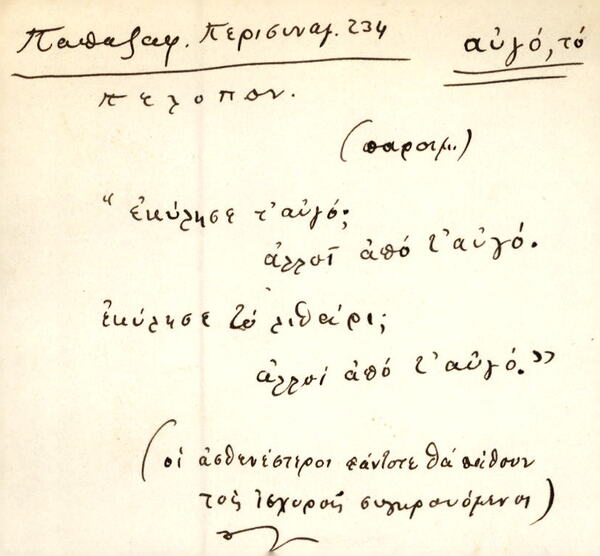 Παπαζαφ. Περισυναγ. 234
αὐγό, τό
Πελοπον.
(παροιμ.)
"ἐκύλησε τ' αὐγό;
ἀλλοῖ ἀπό τ' αὐγό.
ἐκύλησε τό λιθάρι;
ἀλλοί ἀπό τ' αὐγό."
(οἱ ἀσθενέστεροι πάντοτε θά πάθουν
τοῖς ἰσχυροῖς συγκρουόμενοι)